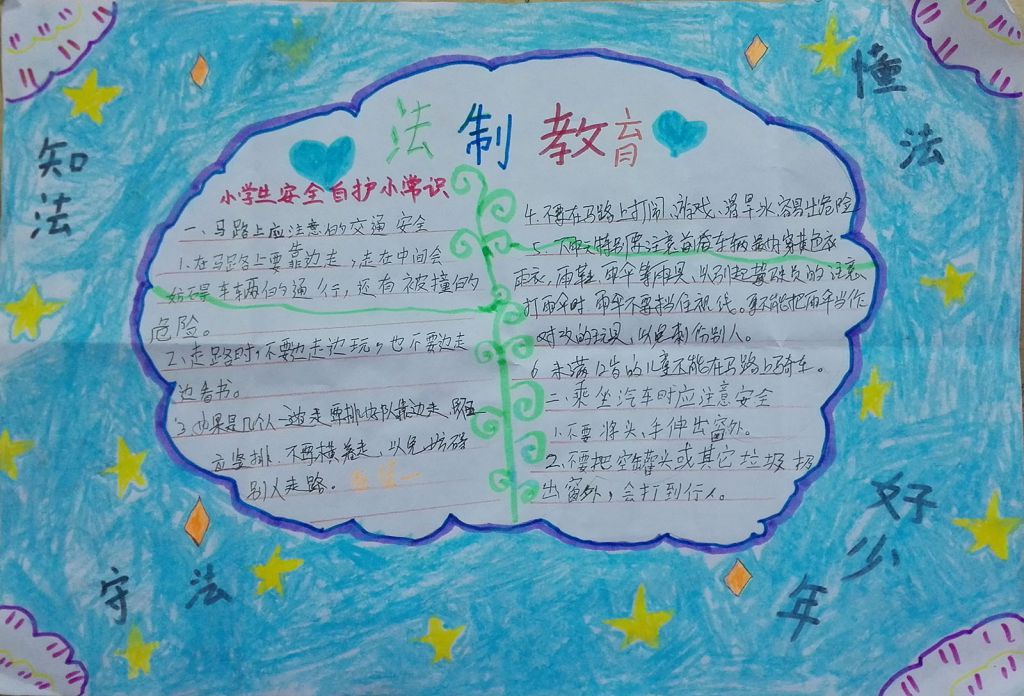 法制教育
知法
懂法
守法
好少年
小学生安全自护小常识
一、马路上应注意的交通安全
1.在马路上要靠边走,走在中间会
妨碍车辆的通行,还有被撞的
危险。
2、走路时,不要边走边玩,也不要边走
边看书。
3、如果是几个人一边走要排队靠边走
应竖排 不要横着走,以免妨碍
别人走路.
4.不要在马路上打闹、游戏、滑旱冰容易出危险
5、下雨天特别要注意前后车辆最好穿黄色衣
雨衣,雨鞋,雨伞等雨具,以引起驾驶员的注意
打雨伞时 雨伞不要挡住视线。更不能把雨伞当作
对攻的玩具,以免刺伤别人。
6.未满12岁的儿童不能在马路上骑车。
二、乘坐汽车时应注意安全
1.不要将头、手伸出窗外。
2.不要把空罐头或其它垃圾扔
出窗外,会打到行人。